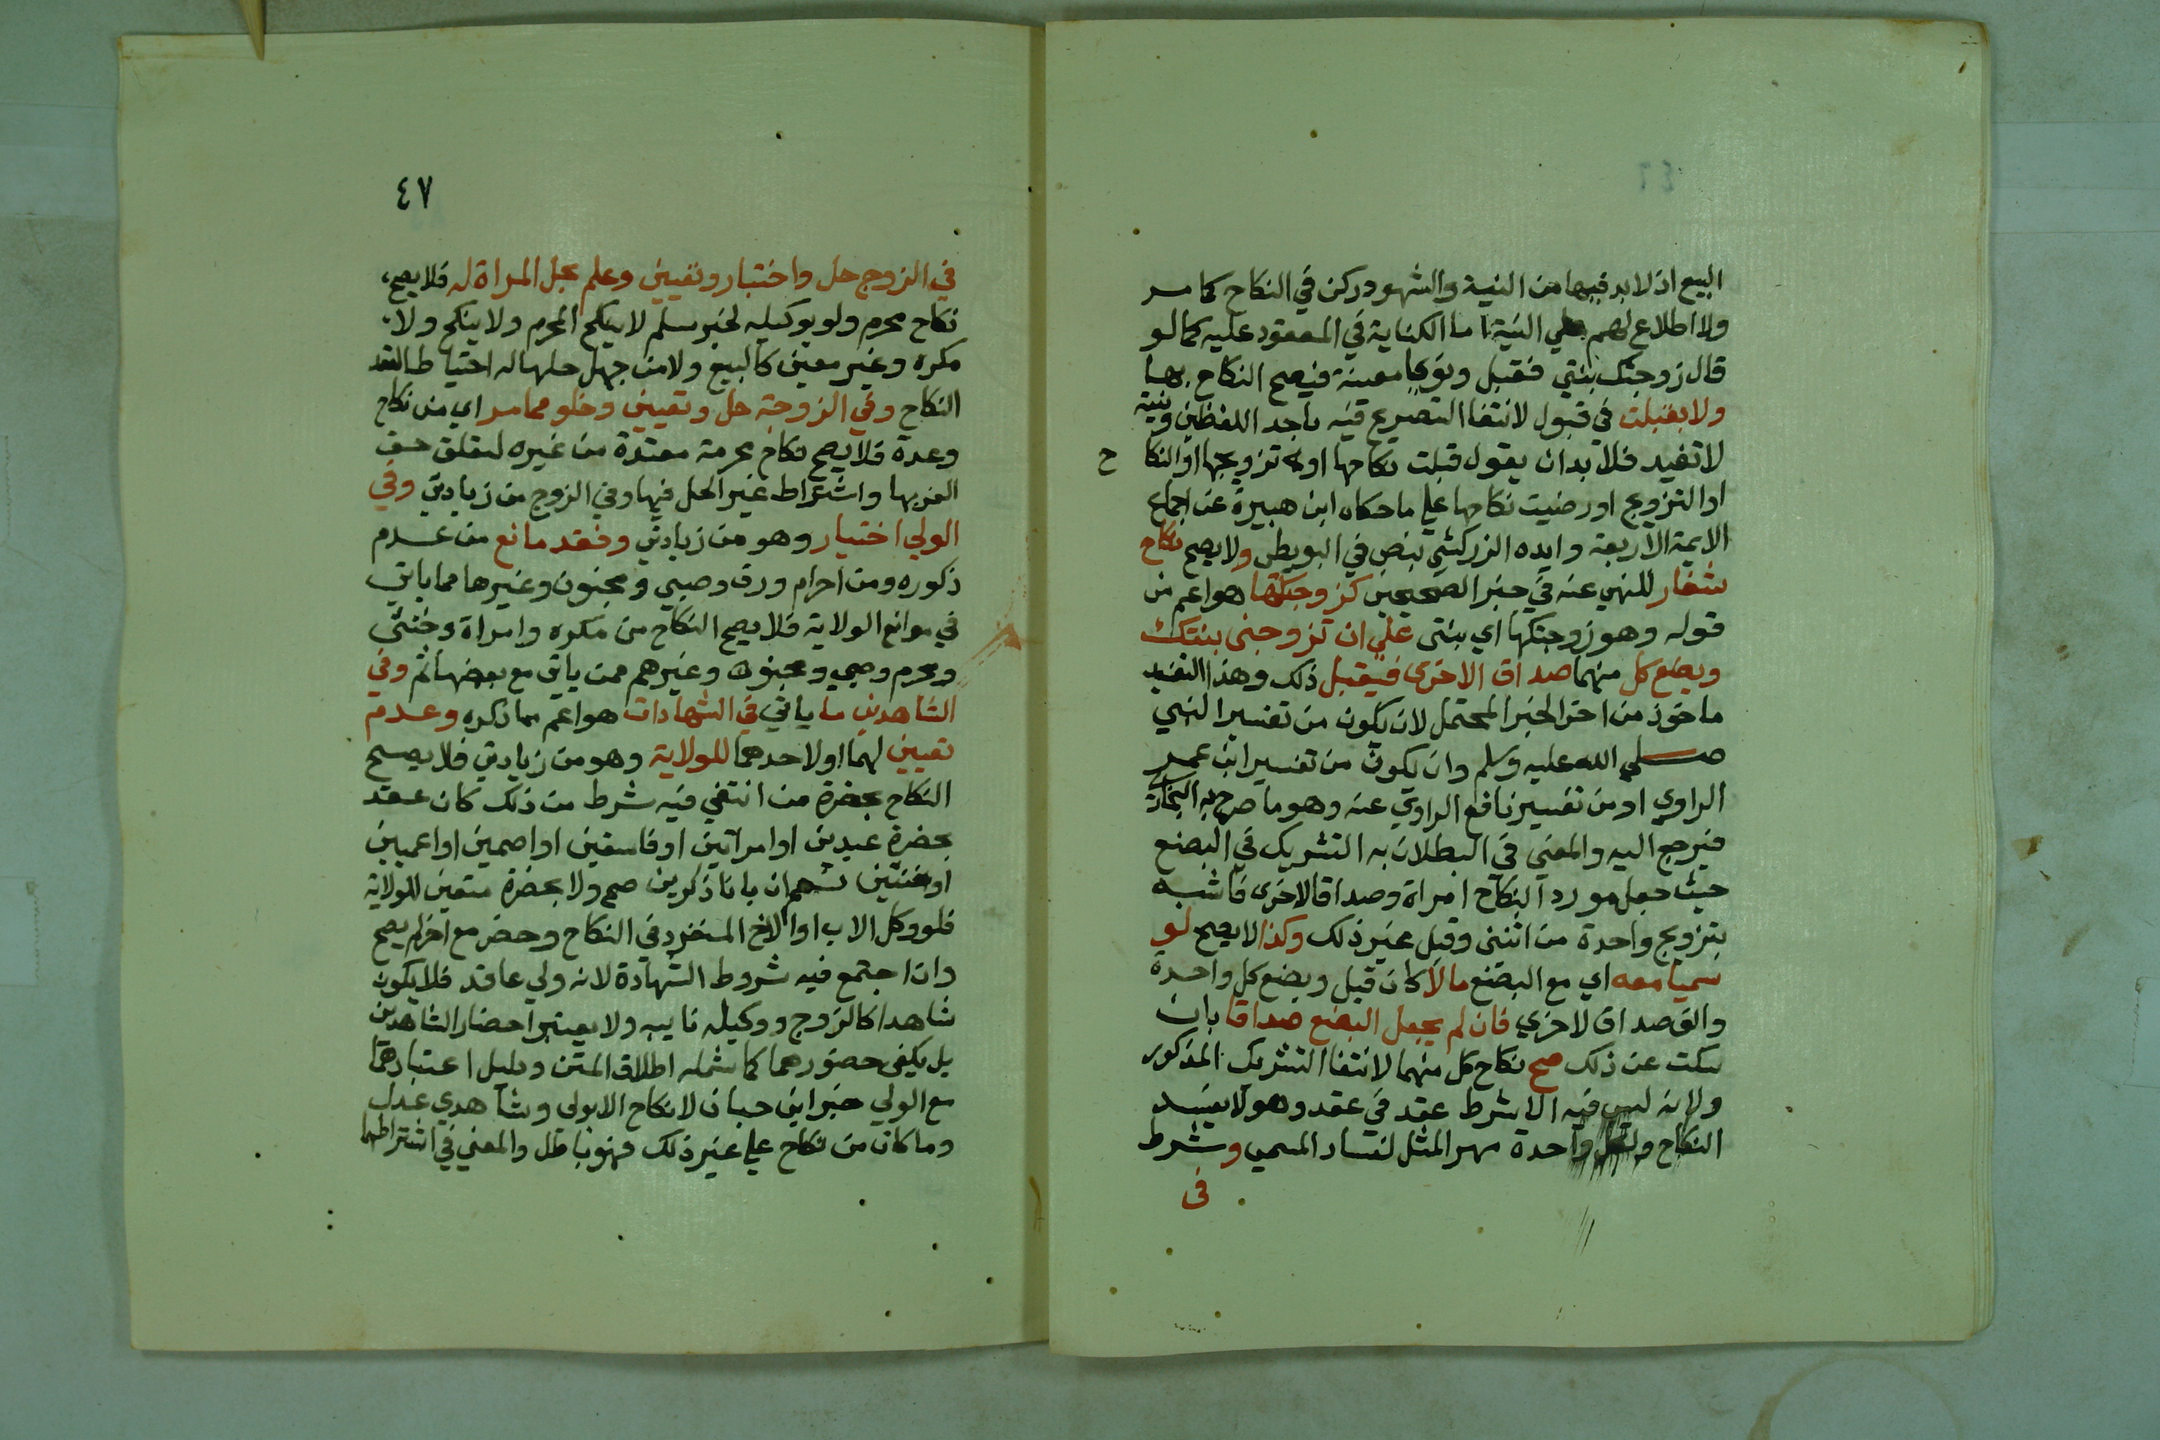 البيع اذ لا بد فيها من النية والشهود ركن في النكاح كما مر
ولا اطلاع لهم علي النية اما الكناية في المعقود عليه كما لو
قال زوجتك بنتي فقبل ونويا معينة فيصح النكاح بها
ولا بقبلت في قبول لانتفا التصريح فيه باحد اللفظين ونيته
لا تفيد فلا بد ان يقول قبلت نكاحها او تزويجها او النكا
ح
او التزويج او رضيت نكاحها علي ما حكاه ابن هبيرة عن اجماع
الايمة الاربعة وايده الزركشي بنص في البويطي ولا يصح نكاح
شغار للنهي عنه في خبر الصحيحين كزوجتكها هو اعم من
قوله وهو زوجتكها اي بنتي علي ان تزوجني بنتك
وبضع كل منهما صداق الاخرى فيقبل ذلك وهذا التفسير
ماخوذ من اخر الخبر المحتمل لان يكون من تفسير النبي
صلي الله عليه وسلم وان يكون من تفسير ابن عمر
الراوي او من تفسير نافع الراوي عنه وهو ما صرح به البخاري
فيرجع اليه والمعني في البطلان به التشريك في البضع
حيث جعل مورد النكاح امراة وصداقا لاخرى فاشبه
بتزويج واحدة من اثنين وقيل غير ذلك وكذا لا يصح لو
سميا معه اي مع البضع مالا كان قيل وبضع كل واحدة
والف صداق لاخري فان لم يجعل البضع صداقا بان
سكت عن ذلك صح نكاح كل منهما لانتفا التشريك المذكور
ولانه ليس فيه الا شرط عقد في عقد وهو لا يفسد
النكاح ولكل واحدة مهر المثل لفساد المسمي وشرط
في
٤٧
في الزوج حل واختيار وتعيين وعلم بحل المراة له فلا يصح
نكاح محرم ولو بوكيله لخبر مسلم لا ينكح المحرم ولا ينكح ولا
مكره وغير معين كالبيع ولا من جهل حلها له احتياطا لعقد
النكاح وفي الزوجة حل وتعيين وخلو مما مر اي من نكاح
وعدة فلا يصح نكاح محرمة معتدة من غيره لتعلق حق
الغير بها واشتراط غير الحل فيها وفي الزوج من زيادتي وفي
الولي اختيار وهو من زيادتي وفقد مانع من عدم
ذكوره ومن احرام ورق وصبي ومجنون وغيرها مما ياتي
في موانع الولاية فلا يصح النكاح من مكره وامراة وخنثى
ومحرم وصبي ومجنون وغيرهم ممن ياتي مع بعضها ثم وفي
الشاهدين ما ياتي في الشهادات هو اعم مما ذكره وعدم
تعيين لهما او لاحدهما للولاية وهو من زيادتي فلا يصح
النكاح بحضرة من انتفي فيه شرط من ذلك كان عقد
بحضرة عبدين او امراتين او فاسقين او اصمين او اعميين
او خنثيين ثم بانا ذكرين صح ولا بحضرة متعين للولاية
فلو وكل الاب او الاخ المنفرد في النكاح وحضر مع اخر لم يصح
وان اجتمع فيه شروط الشهادة لانه ولي عاقد فلا يكون
شاهدا كالزوج ووكيله نايبه ولا يعتبر احضار الشاهدين
بل يكفي حضورهما كما شمله اطلاق المتن ودليل اعتبارهما
مع الولي خبر ابن حبان لا نكاح الا بولي وشاهدي عدل
وما كان من نكاح علي غير ذلك فهو باطل والمعني في اشتراطهما